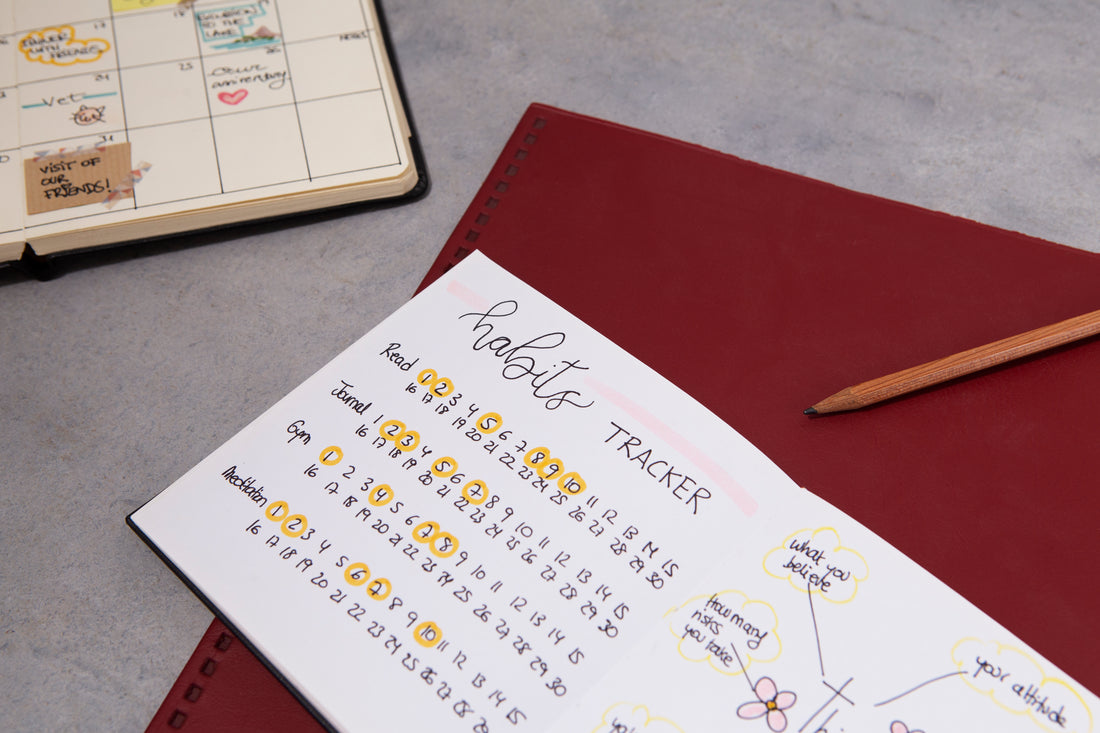 17
18
DINNER
WITH FRIENDS
EXCURSION
TO THE
LAKE
NOTES
24
25
26
Vet
Our
anniversary
31
VISIT OF
OUR
FRIENDS!
habits
TRACKER
Read 1 2 3 4 5 6 7 8 9 10 11 12 13 14 15
16 17 18 19 20 21 22 23 24 25 26 27 28 29 30
Journal 1 2 3 4 5 6 7 8 9 10 11 12 13 14 15
16 17 18 19 20 21 22 23 24 25 26 27 28 29 30
Gym 1 2 3 4 5 6 7 8 9 10 11 12 13 14 15
16 17 18 19 20 21 22 23 24 25 26 27 28 29 30
Meditation 1 2 3 4 5 6 7 8 9 10 11 12 13 14 15
16 17 18 19 20 21 22 23 24 25 26 27 28 29
what you
believe
How many
risks
you take
your attitude